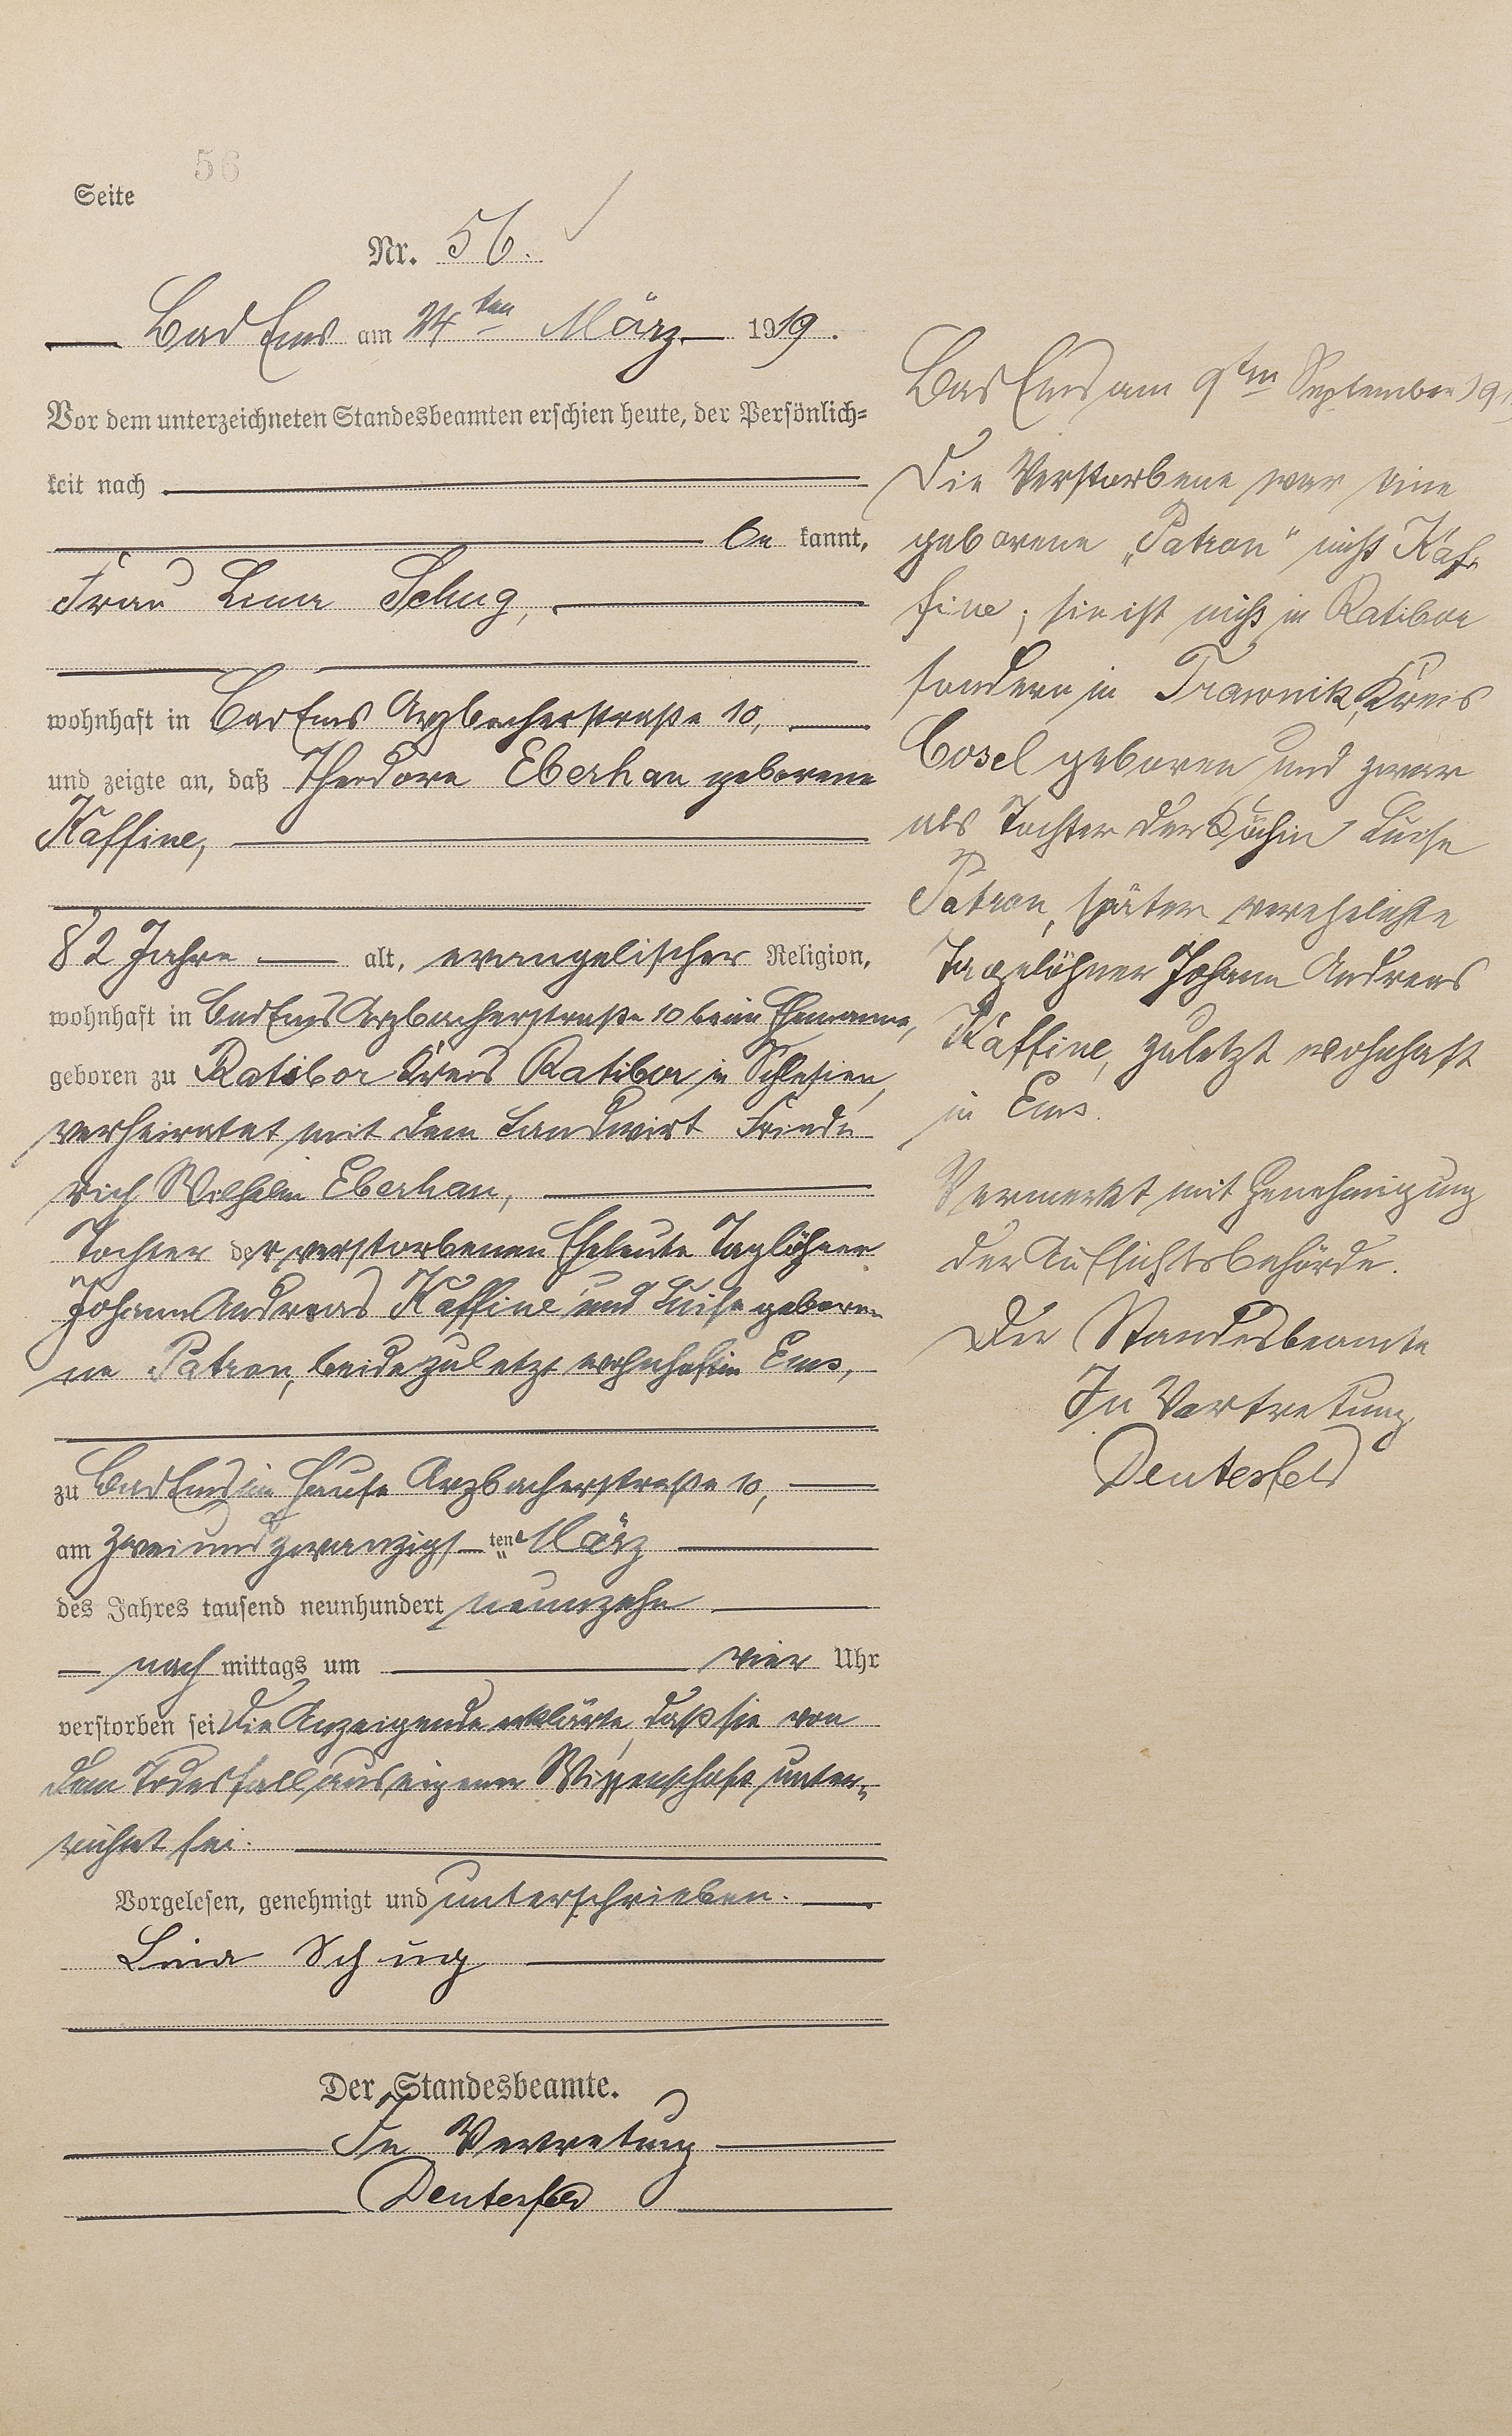 56
Seite
Nr. 56.
Bad Ems am 24ten März 1919.
Vor dem unterzeichneten Standesbeamten erschien heute, der Persönlich=
keit nach
be kannt,
Frau Lina Schug,
wohnhaft in Bad Ems Arzbacherstraße 10,
und zeigte an, daß Theodore Eberhan geborene
Kaffine,
82 Jahre alt, evangelischer Religion,
wohnhaft in Bad Ems Arzbacherstraße 10 beim Ehemanne,
geboren zu Ratibor Kreis Ratibor in Schlesien,
verheiratet mit dem Landwirt Friede
rich Wilhelm Eberhan,
Tochter der verstorbenen Eheleute Taglöhner
Johann Andreas Kaffine und Luise gebore-
ne Patron, beide zuletzt wohnhaft in Ems,
zu Bad Ems im Hause Arzbacherstraße 10,
am zweiundzwanzigsten März
des Jahres tausend neunhundert neunzehn
nach mittags um vier Uhr
verstorben sei. Die Anzeigende erklärte, daß sie von
dem Todesfall aus eigener Wissenschaft unter-
richtet sei.
Vorgelesen, genehmigt und unterschrieben.
Lina Schug
Der Standesbeamte.
In Vertretung
Deutesfeld
Bad Ems am 9ten September 191
Die Verstorbene war eine
geborene „Patron" nicht Kaf-
fine; sie ist nicht in Ratibor
sondern in Trawnik, Kreis
Cosel geboren und zwar
als Tochter der Köchin Luise
Patron, später verehelichte
Tagelöhner Johann Andreas
Kaffine, zuletzt wohnhaft
in Ems.
Vermerkt mit Genehmigung
der Aufsichtsbehörde.
Der Standesbeamte
In Vertretung
Deutesfeld